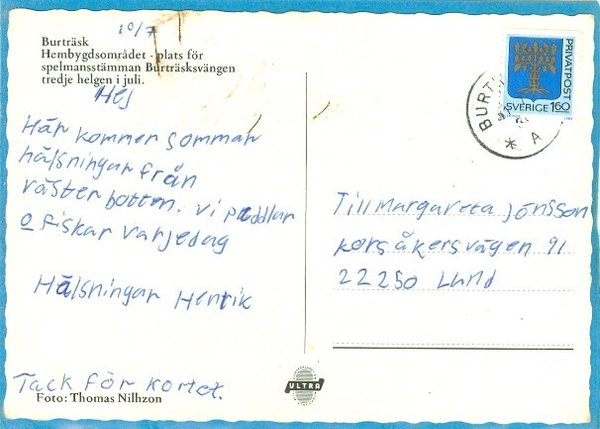 10/7
Burträsk
Hembygdsområdet - plats för
spelmansstämman Burträsksvängen
tredje helgen i juli.
Hej
Här kommer sommar
hälsningar från
väster botten. vi paddlar
o fiskar varje dag
Hälsningar Henrik
Tack för kortet.
Foto: Thomas Nilhzon
ULTRA
PRIVATPOST
SVERIGE 160
BURT
A
Till margareta jönsson
korsåkersvägen 91
22250 Lund